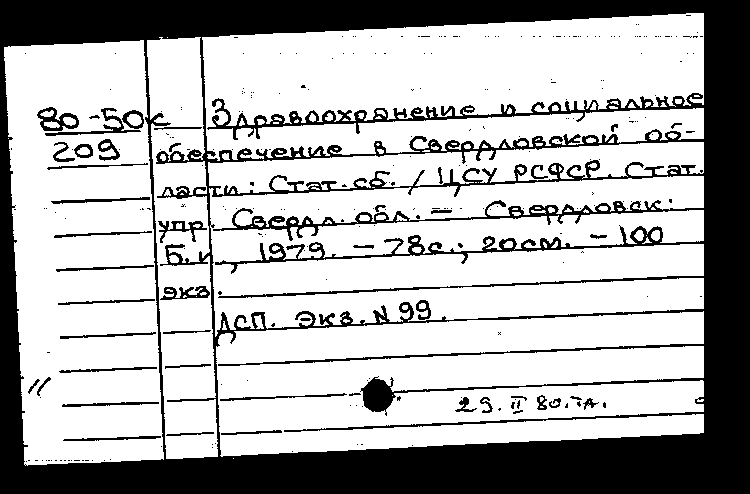 80-50к Здравоохранение и социальное
209 обеспечение в Свердловской об-
ласти: Стат. сб. / ЦСУ РСФСР. Стат.
упр. Свердл. обл. — Свердловск:
Б.и., 1979. — 78с.; 20см. — 100
экз.
ДСП. Экз. N 99.
29. II 80.